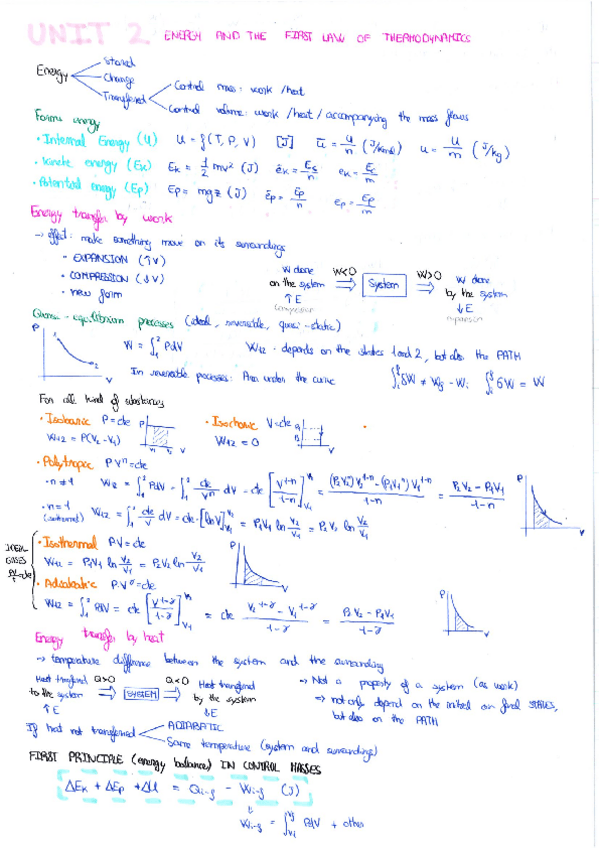 UNIT 2 ENERGY AND THE FIRST LAW OF THERMODYNAMICS
Energy
Stored
Change
Transferred
Control mass: work / heat
Control volume: work / heat / accompanying the mass flows
Forms energy
· Internal Energy (U) U = f(T, P, V) [J] ū = U/n (J/kmol) u = U/m (J/kg)
· Kinetic energy (Ek) Ek = 1/2 mv² (J)
· Potential energy (Ep) Ep = mgz (J) ēp = Ep/n ep = Ep/m
Energy transfer by work
→ effect: make something move on its surroundings
· EXPANSION (↑V)
· COMPRESSION (↓V)
· new form
W done on the system W<0 ⇒ System W>0 ⇒ W done by the system
↑E ↓E
compression expansion
Quasi-equilibrium processes (ideal, reversible, quasi-static)
P 1 2 V
W = ∫₁² PdV W12 · depends on the states 1 and 2, but also the PATH
In reversible processes: Area under the curve ∫δW ≠ Wf - Wi ∫δW = W
For all kind of substances
· Isobaric P=cte · Isochoric V=cte
W12 = P(V2-V1) W12 = 0
· Polytropic PVⁿ=cte
· n≠1 = (P2V2 - P1V1)/(1-n)
· n=1 (isothermal) W12 = ∫₁² cte/V dV = cte·[ln V] = P1V1 ln V2/V1 = P2V2 ln V2/V1
IDEAL GASES
· Isothermal P·V=cte
W12 = P1V1 ln V2/V1 = P2V2 ln V2/V1
· Adiabatic P·V^γ=cte
W12 = ∫₁² PdV = cte [V^(1-γ)/(1-γ)] = cte (V2^(1-γ) - V1^(1-γ))/(1-γ) = (P2V2 - P1V1)/(1-γ)
Energy transfer by heat
→ temperature difference between the system and the surrounding
Heat transferred to the system Q>0 ⇒ SYSTEM Q<0 ⇒ Heat transferred by the system
↑E ↓E
→ Not a property of a system (as work)
⇒ not only depend on the initial and final STATES,
but also on the PATH
If heat not transferred
ADIABATIC
Same temperature (system and surroundings)
FIRST PRINCIPLE (energy balance) IN CONTROL MASSES
ΔEk + ΔEp + ΔU = Qi-f - Wi-f (J)
Wi-f = ∫ PdV + other